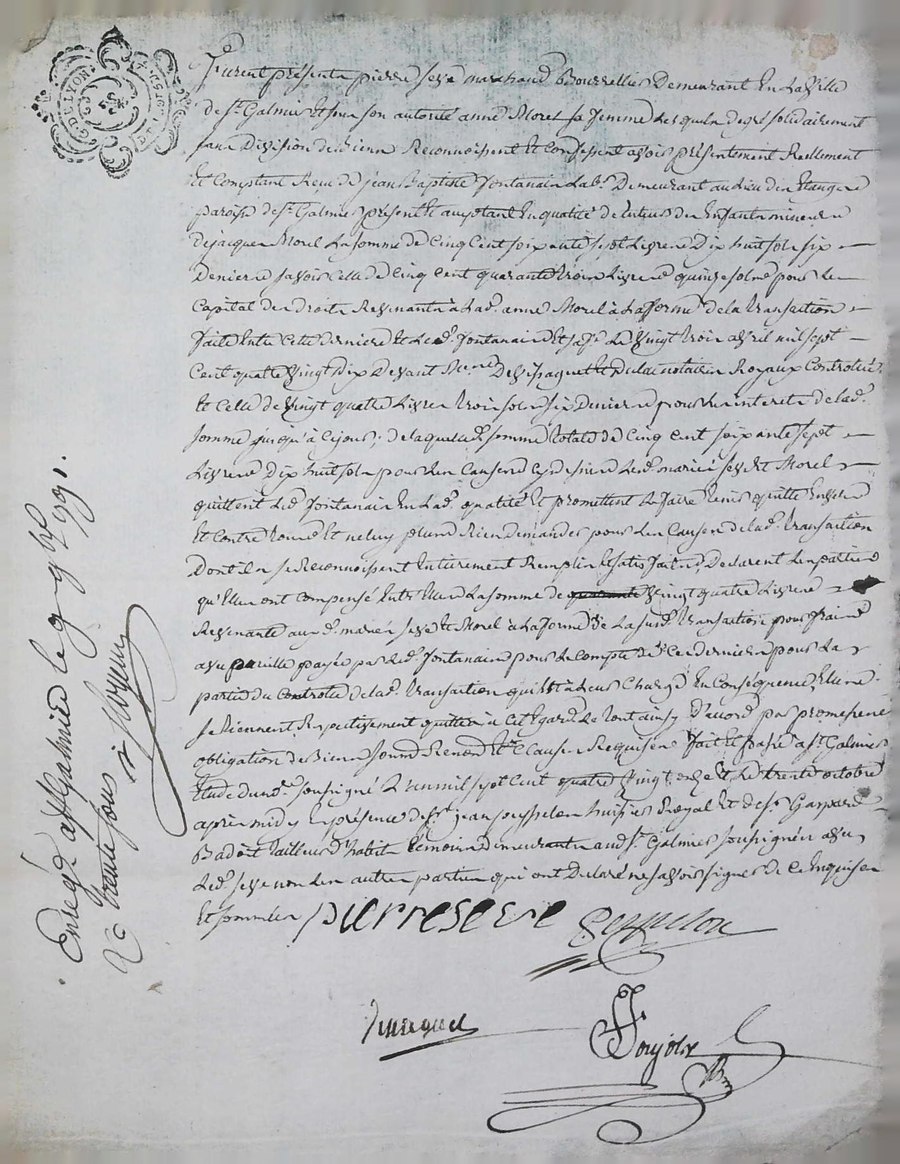 G. DE LYON
Furent présents pierre seve marchand Bourrellier Demeurant En la Ville
de st. Galmier Et sous son autorité anne Morel sa femme Lesquels de gré solidairement
sans Division de Biens Reconnoissent Et Confessent avoir présentement Reellement
Et Comptant Reçu de jean Baptiste fontanair Lab. Demeurant au Lieu des Etangs
paroisse de st. Galmier présent Et acceptant En qualité de tuteur des Enfants mineurs
de jacques Morel La somme de Cinq Cent soixante sept Livres Dix huit sols six
Deniers savoir Celle de Cinq Cent quarante trois Livres quinze sols pour Le
Capital des Droits Revenants à Lad. anne Morel à La forme de la transaction
faite Entre Cette derniere Et Led. fontanair Le Vingt trois avril mil sept
Cent quatre Vingt Dix Devant notaires Royaux Controlée
Et Celle de Vingt quatre Livres trois sols six Deniers pour Les interets de lad.
somme jusqu'à Ce jour ; de laquelle somme totale de Cinq Cent soixante sept
Livres Dix huit sols pour Les Causes Cy dessus Led. mariés seve Et Morel
quittent Led. fontanair En Lad. qualité Et promettent Le faire tenir quitte Envers
Et Contre tous Et ne luy plus Rien Demander pour Les Causes de lad. transaction
Dont ils se Reconnoissent Entierement Remplis Et satisfaits, Declarent Les parties
qu'Elles ont Compensé Entr'Elles La somme de quarante Vingt quatre Livres
Revenante aux d. mariés seve Et Morel à La forme de La susd. transaction pour frais
avec pareille payée par Led. fontanair pour Le Compte de Ces derniers pour La
partie du Controle de lad. transaction qui Est à Leur Charge En Consequence Elles
se tiennent Respectivement quittes à Cet Egard Le tout ainsy D'accord par promesses
obligation de Biens soumo. Renono. Et Clauses Requises fait Et passé à st. Galmier
Etude du no. soussigné L'an mil sept Cent quatre Vingt onze Et Le trente octobre
après midy En présence de sr. jean huissier Royal Et de sr. Gaspard
Badoit tailleur d'habits temoins Demeurants aud. st. Galmier soussignés avec
Led. seve non Les autres parties qui ont Declaré ne savoir signer de Ce Enquises
Et sommées pierre seve
Enregé. à st. galmier le 9 9bre 1791.
Rc trente sous